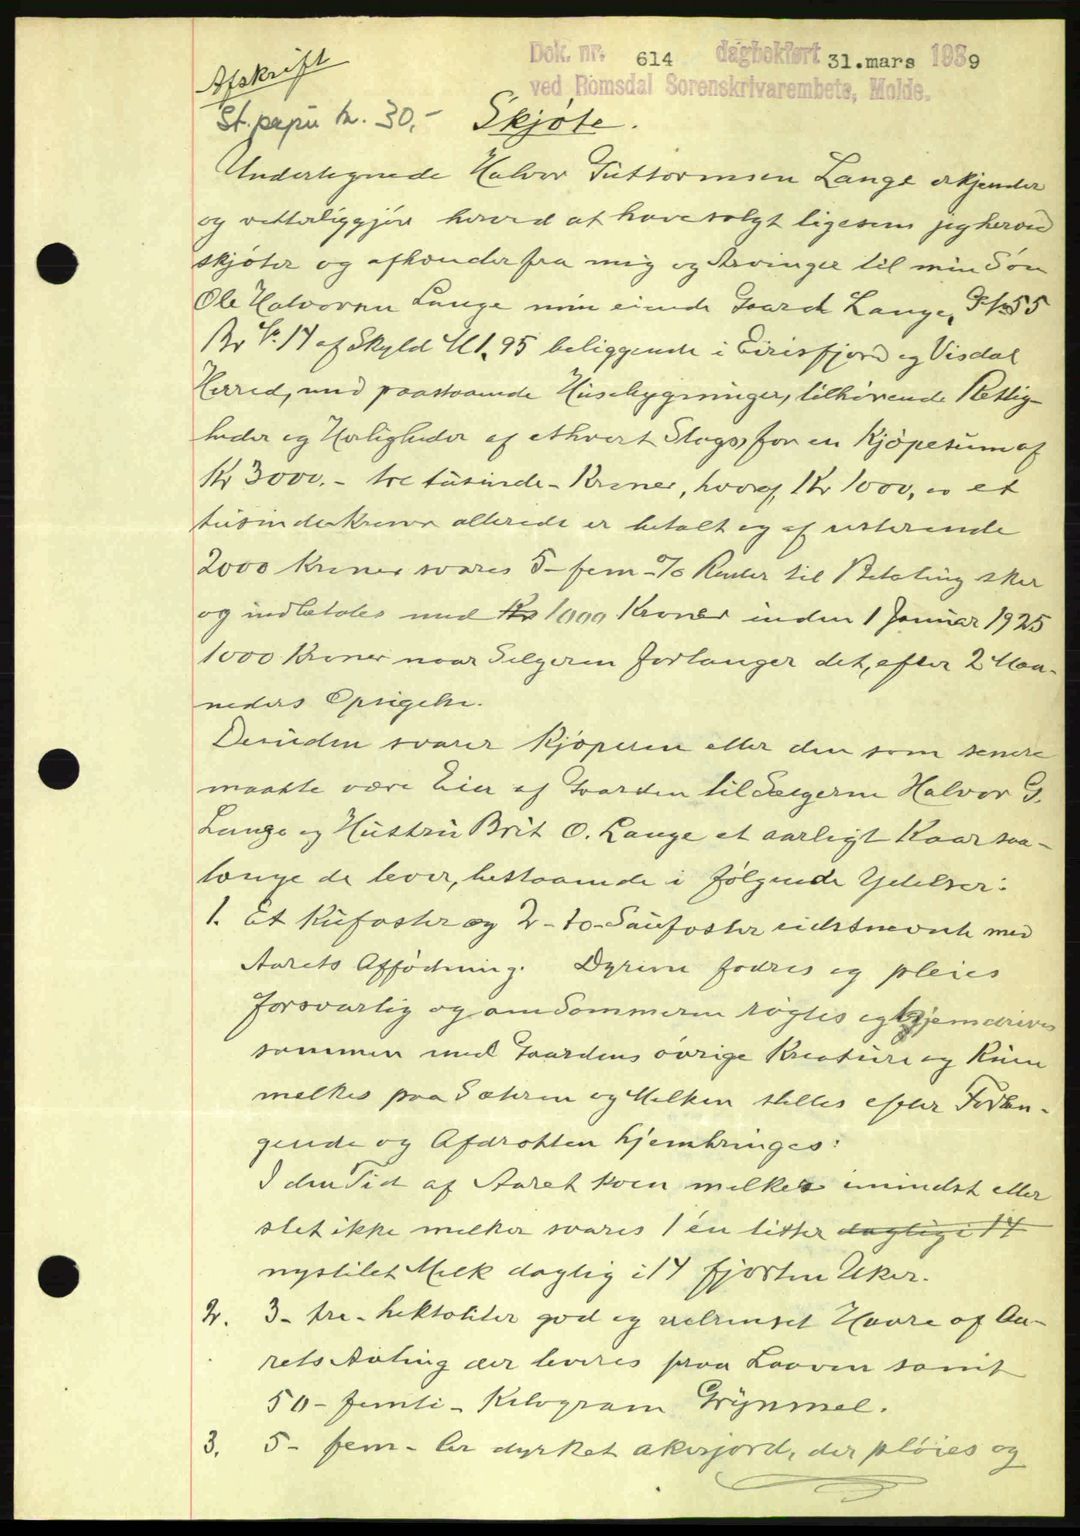 Afskrift
Dok. nr. 614 dagbokført 31.mars 1939
ved Romsdal Sorenskrivarembete, Molde.
St. papir kr. 30,- Skjøte.
Undertegnede Halvor Guttormsen Lange erkjender
og vitterliggjør herved at have solgt ligesom jeg herved
skjøter og afhænder fra mig og Arvinger til min Søn
Ole Halvorsen Lange min eiende Gaard Lange, G.No 55
Br No 14 af Skyld M 1,95 beliggende i Eirisfjord og Visdal
Herred, med paastaaende Husebygninger, tilhørende Rettig-
heder og Herligheder af ethvert Slags, for en Kjøpesum af
Kr 3000.- tre tusinde- Kroner, hvoraf Kr 1000, et
tusinde kroner allerede er betalt og af resterende
2000 Kroner svares 5- fem -% Renter til Betaling sker
og indbetales med Kr 1000 Kroner inden 1 Januar 1925
1000 Kroner naar Selgeren forlanger det, efter 2 Maa-
neders Opsigelse.
Desuden svarer Kjøperen eller den som senere
maatte være Eier af Gaarden til Sælgerne Halvor G.
Lange og Hustru Brit O. Lange et aarligt Kaar saa-
længe de lever, bestaaende i følgende Ydelser:
1. Et Kufoster og 2- to- Saufoster sidstnevnte med
Aarets Affødning. Dyrene fodres og pleies
forsvarlig og om Sommeren røgtes og hjemdrives
sammen med Gaardens øvrige Kreature og Kuen
melkes paa Sæteren og Melken stelles efter Forlan-
gende og Afdrotten hjembringes:
I den Tid af Aaret koen melker i mindst eller
slet ikke melker svares 1 én litter daglig i 14
nysilet Melk daglig i 14 fjorten Uker.
2. 3- tre- hektoliter god og velrenset Havre af Aa-
rets Avling der leveres paa Laaven samt
50- femti- Kilogram Grynmel.
3. 5- fem- ler dyrket akerjord, der pløies og